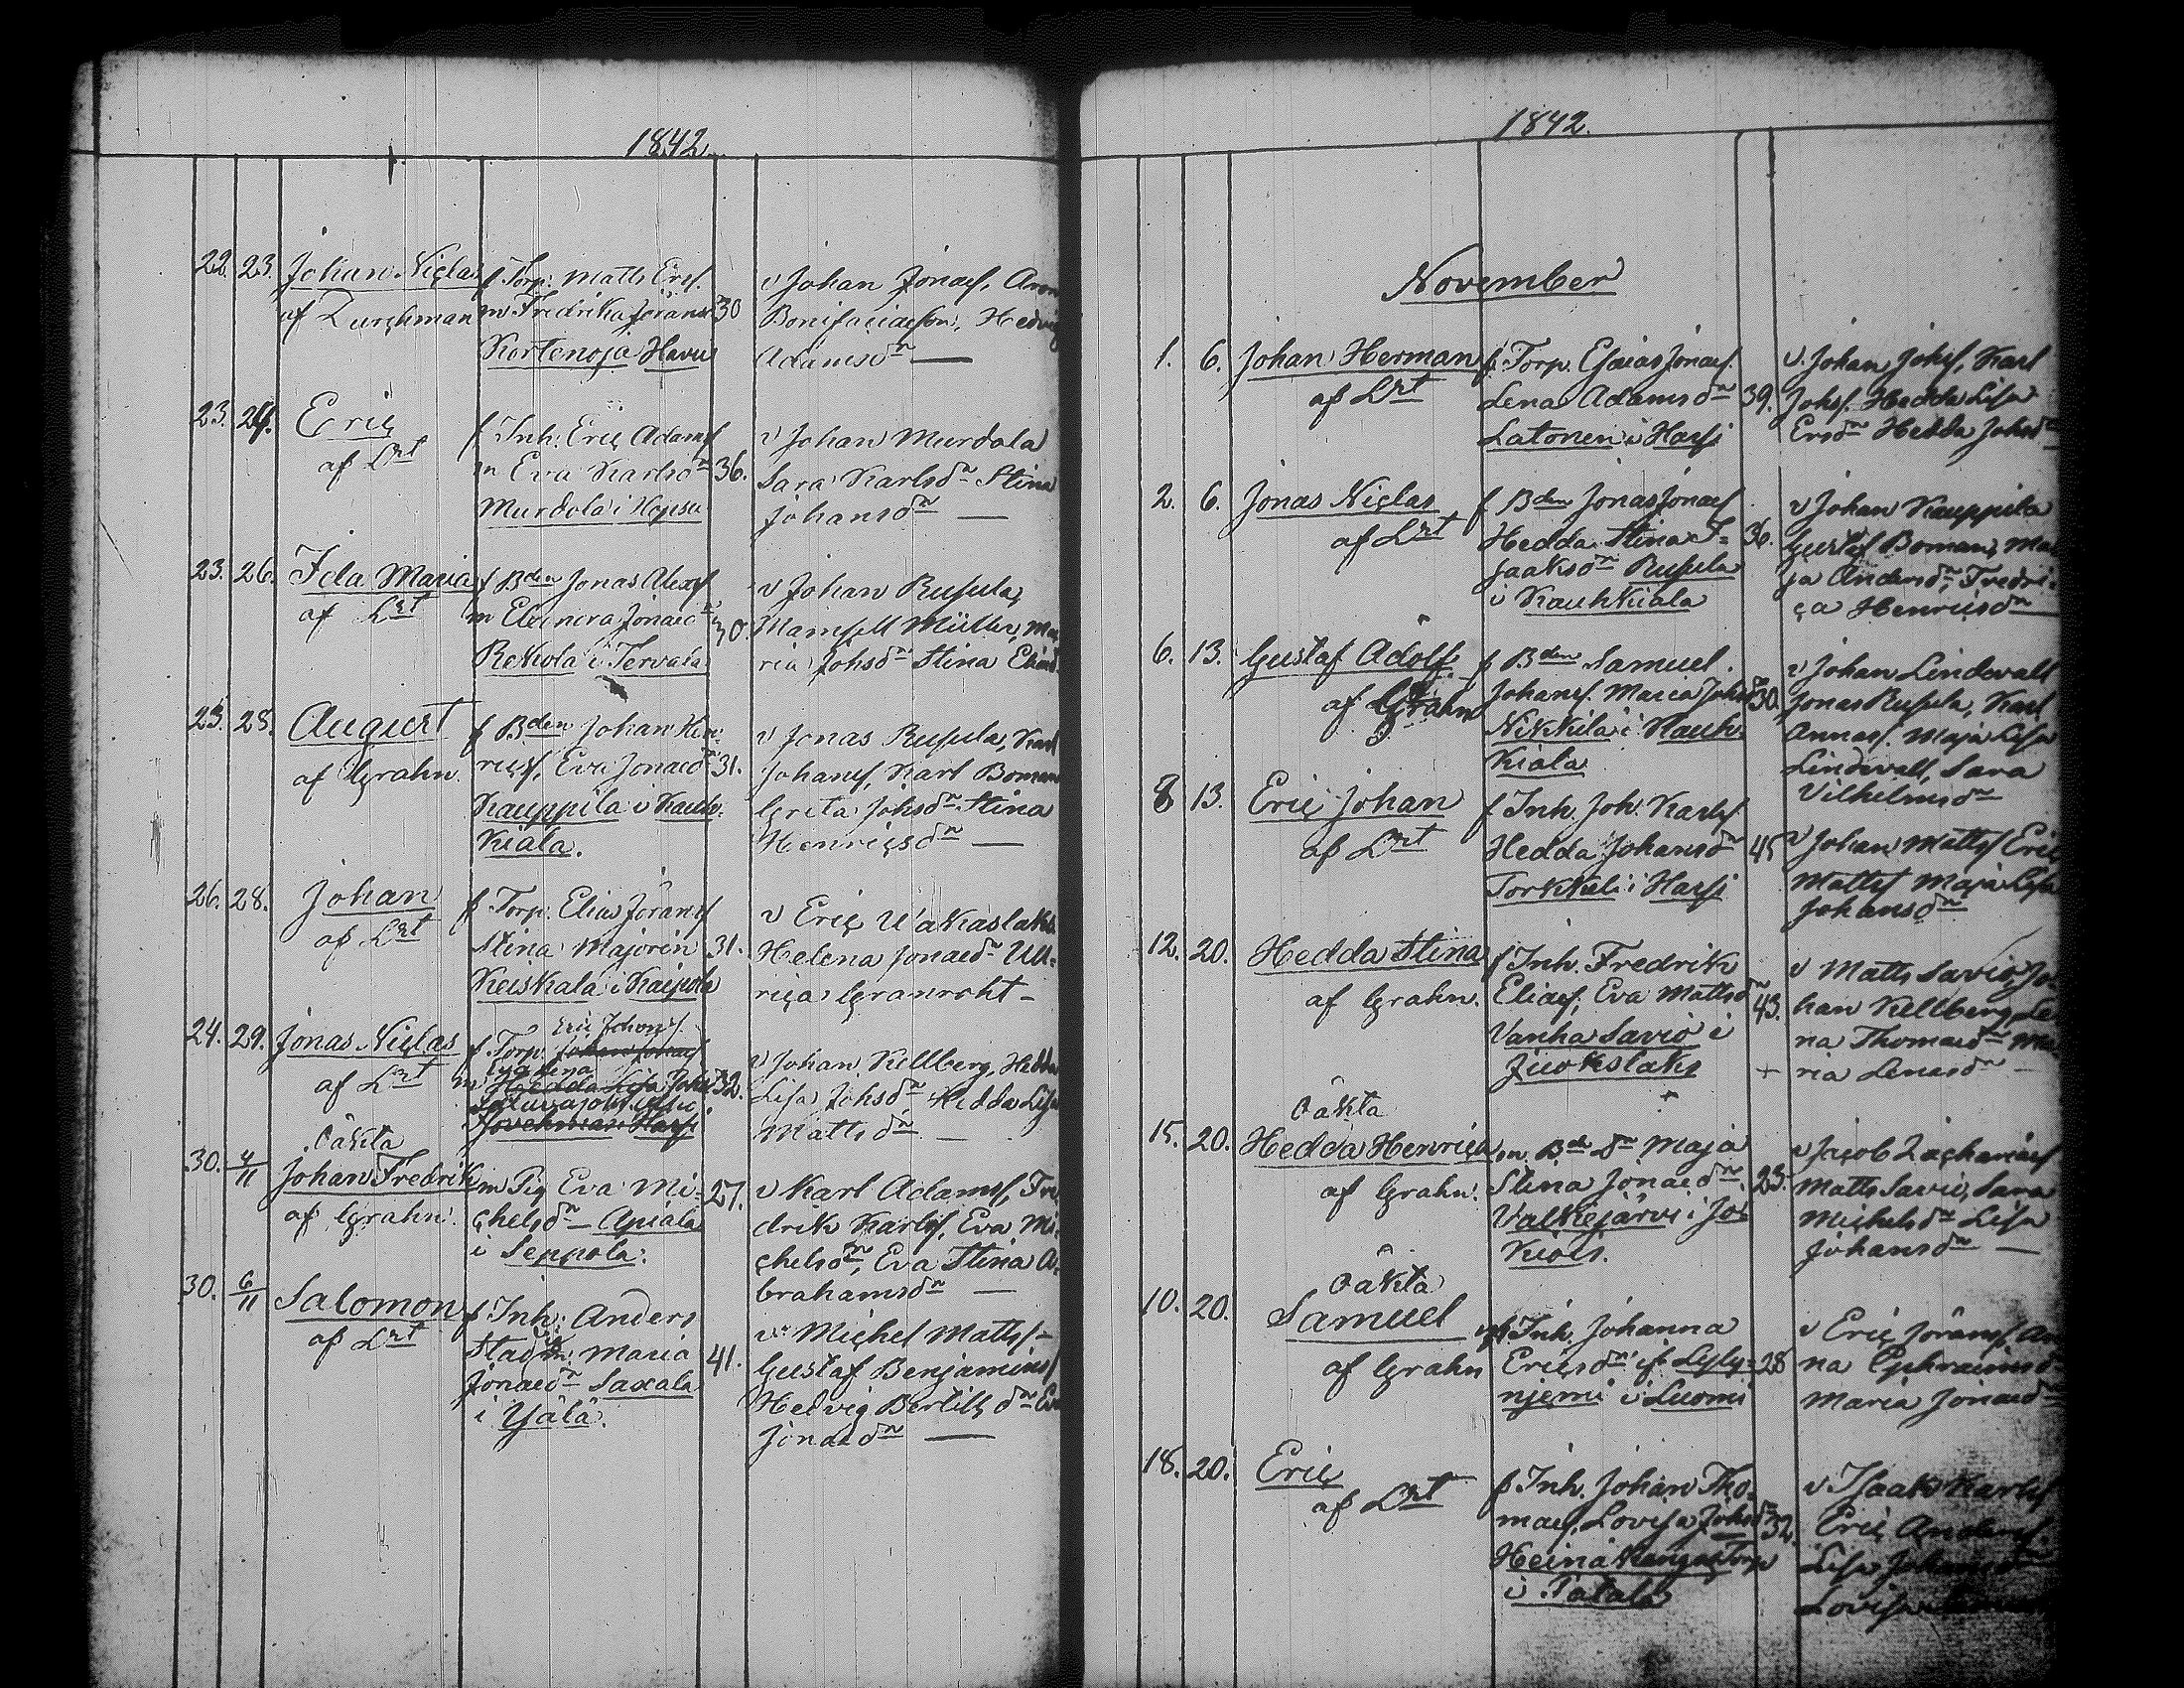 1842.
22. 23. Johan Niclas
af Zurchman
f Torp: Matts Ersf.
m Fredrika Jöransd
Kortenoja Havus
30
v Johan Jonasf, Aron
Bonifaciasson, Hedvig
Adamsdr —
23. 24. Eric
af Lrt
f Inh: Eric Adamsf
m Eva Karlsdr
Murdola i Hopsu
36.
v Johan Murdola
Sara Karlsdr Stina
Johansdr —
23. 26. Ida Maria
af Lrt
f Bden Jonas Alexsf
m Eleonora Jonaedr
Rekola i Tervala
30.
v Johan Rusula,
Mamsell Müller, Ma
ria Johsdr Stina
23. 28. August
af Grahn.
f Bden Johan Hen-
ricsf, Eva Jonaedr
Kauppila i Kauh-
kiala.
31.
v Jonas Rusula, Karl
Johansf, Karl Boman
Greta Johsdr Stina
Henricsdr —
26. 28. Johan
af Lrt
f Torp: Elias Jöransf
Stina Majorin
Keiskala i Kaipola
31.
v Eric
Helena Jonaedr Ull-
rica Granroht —
24. 29. Jonas Niclas
af Lrt
Eric Johansf.
f Torp: Johan Jonaesf
m Hedda Lisa Johsd
32.
v Johan Kellberg, Hedda
Lisa Johsdr Hedda Lisa
Matts dr —
Oäkta
30. 4/11 Johan Fredrik
af Grahn.
m Pig Eva Mi-
chelsdr — Apiala
i Seppola.
27.
v Karl Adamsf, Fre
drik Karlsf, Eva Mi-
chelsdr, Eva Stina A-
brahamsdr —
30. 6/11 Salomon
af Lrt
f Inh: Anders
Maria
Jonaedr Saxala
i Yälä.
41.
v Michel Mattsf —
Gustaf Benjaminsf
Hedvig Bertils dr Eva
Jonae dr —
1842.
November
1. 6. Johan Herman
af Lrt
f Torp. Esaias Jonaesf.
Lena Adamsdr
Latonen i Harsi
39.
v. Johan Johsf, Karl
Johsf. Hedda Lisa
Ersdr Hedda Johsdr
2. 6. Jonas Niclas
af Lrt
f Bden Jonas Jonaesf
Hedda Stina I-
saaksdr Rusula
i Kauhkiala
36.
v Johan Kauppila
Gustaf Boman, Ma
ja Andersdr, Fredri-
ca Henricsdr
6. 13. Gustaf Adolf
af Grahn
f Bden Samuel
Johansf. Maria Johsdr
Nikkilä i Kauh-
kiala
30.
v Johan Lindevall
Jonas Rusula, Karl
Annasf. Maja Lisa
Lindevall, Sara
Vilhelmsdr
8 13. Eric Johan
af Lrt
f Inh. Joh. Karlsf
Hedda Johansdr
Torkkeli i Harsi
45
v Johan Mattsf Eric
Mattsf Maja Lisa
Johansdr
12. 20. Hedda Stina
af Grahn.
f Inh. Fredrik
Eliaesf, Eva Mattsdr
Vanha Savio i
Juokslaks
43.
+
v Matts Savio, Jo
han Kellberg, Le
na Thomaedr Ma-
ria Lenasdr —
Oäkta
15. 20. Hedda Henrica
af Grahn.
m. Bde dr Maja
Stina Jonaedr
Valkejärvi i Jo-
kiois.
23.
v Jacob Zachariaesf
Matts Savio, Sara
Michelsdr Lisa
Johansdr —
Oäkta
10. 20. Samuel
af Grahn
Inh. Johanna
Ericsdr Lyly-
njemi i Luomi
28
v Eric Jöransf, An
na Ephraimsd
Maria Jonaedr
18. 20. Eric
af Lrt
f Inh. Johan Tho-
maesf, Lovisa Johsd
Heinäkangas Torp
i Patala
32
v Isaak Karlsf
Eric Andersf
Lisa Johansdr
Lovisa